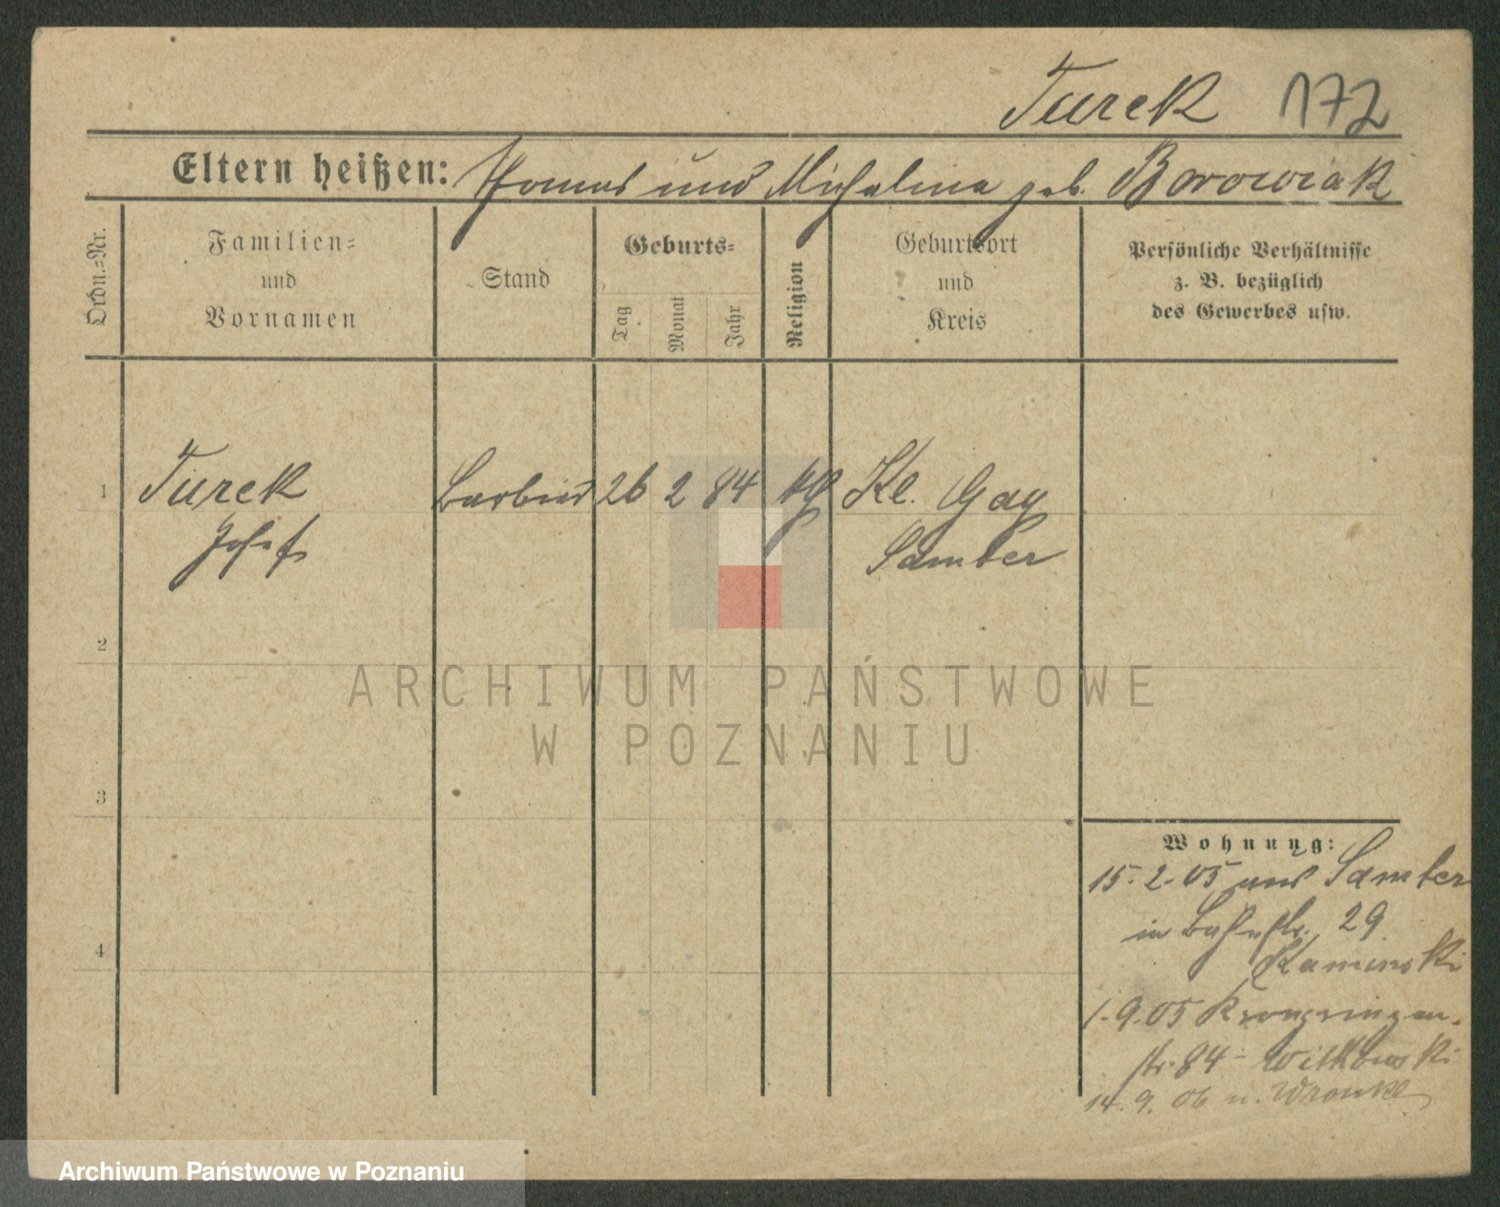 Turek 172
Eltern heißen: Thomas und Michalina geb. Borowiak
Ordn.-Nr.
Familien-
und
Vornamen
Stand
Geburts-
Tag
Monat
Jahr
Religion
Geburtsort
und
Kreis
Persönliche Verhältnisse
z. B. bezüglich
des Gewerbes usw.
1 Turek Barbier 26 2 84 kth Kl. Gay
Josef Samter
2
ARCHIWUM PAŃSTWOWE
W POZNANIU
3
Wohnung:
15.2.05 aus Samter
in Bahnstr. 29
4
Kaminski
1.9.05 Kronprinzen-
str. 84 - Witkowski
14.9.06 n. Wronke
Archiwum Państwowe w Poznaniu